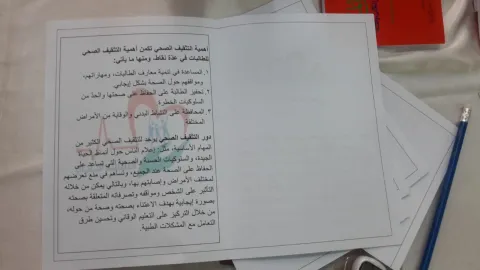 أهمية التثقيف الصحي تكمن أهمية التثقيف الصحي
للطالبات في عدة نقاط، ومنها ما يأتي:
١. المساعدة في تنمية معارف الطالبات، ومهاراتهم،
ومواقفهم حول الصحة بشكل إيجابي.
٢. تحفيز الطالبة على الحفاظ على صحتها والحد من
السلوكيات الخطرة.
٣. المحافظة على النشاط البدني والوقاية من الأمراض
المختلفة
دور التثقيف الصحي يوجد للتثقيف الصحي الكثير من
المهام الأساسية، مثل: إعلام الناس حول أنماط الحياة
الجيدة، والسلوكيات الحسنة والصحية التي تساعد على
الحفاظ على الصحة عند الجميع، وتساهم في منع تعرضهم
لمختلف الأمراض وإصابتهم بها، وبالتالي يمكن من خلاله
التأثير على الشخص ومواقفه وتصرفاته المتعلقة بصحته
بصورة إيجابية بهدف الاعتناء بصحته وصحة من حوله،
من خلال التركيز على التعليم الوقائي وتحسين طرق
التعامل مع المشكلات الطبية.